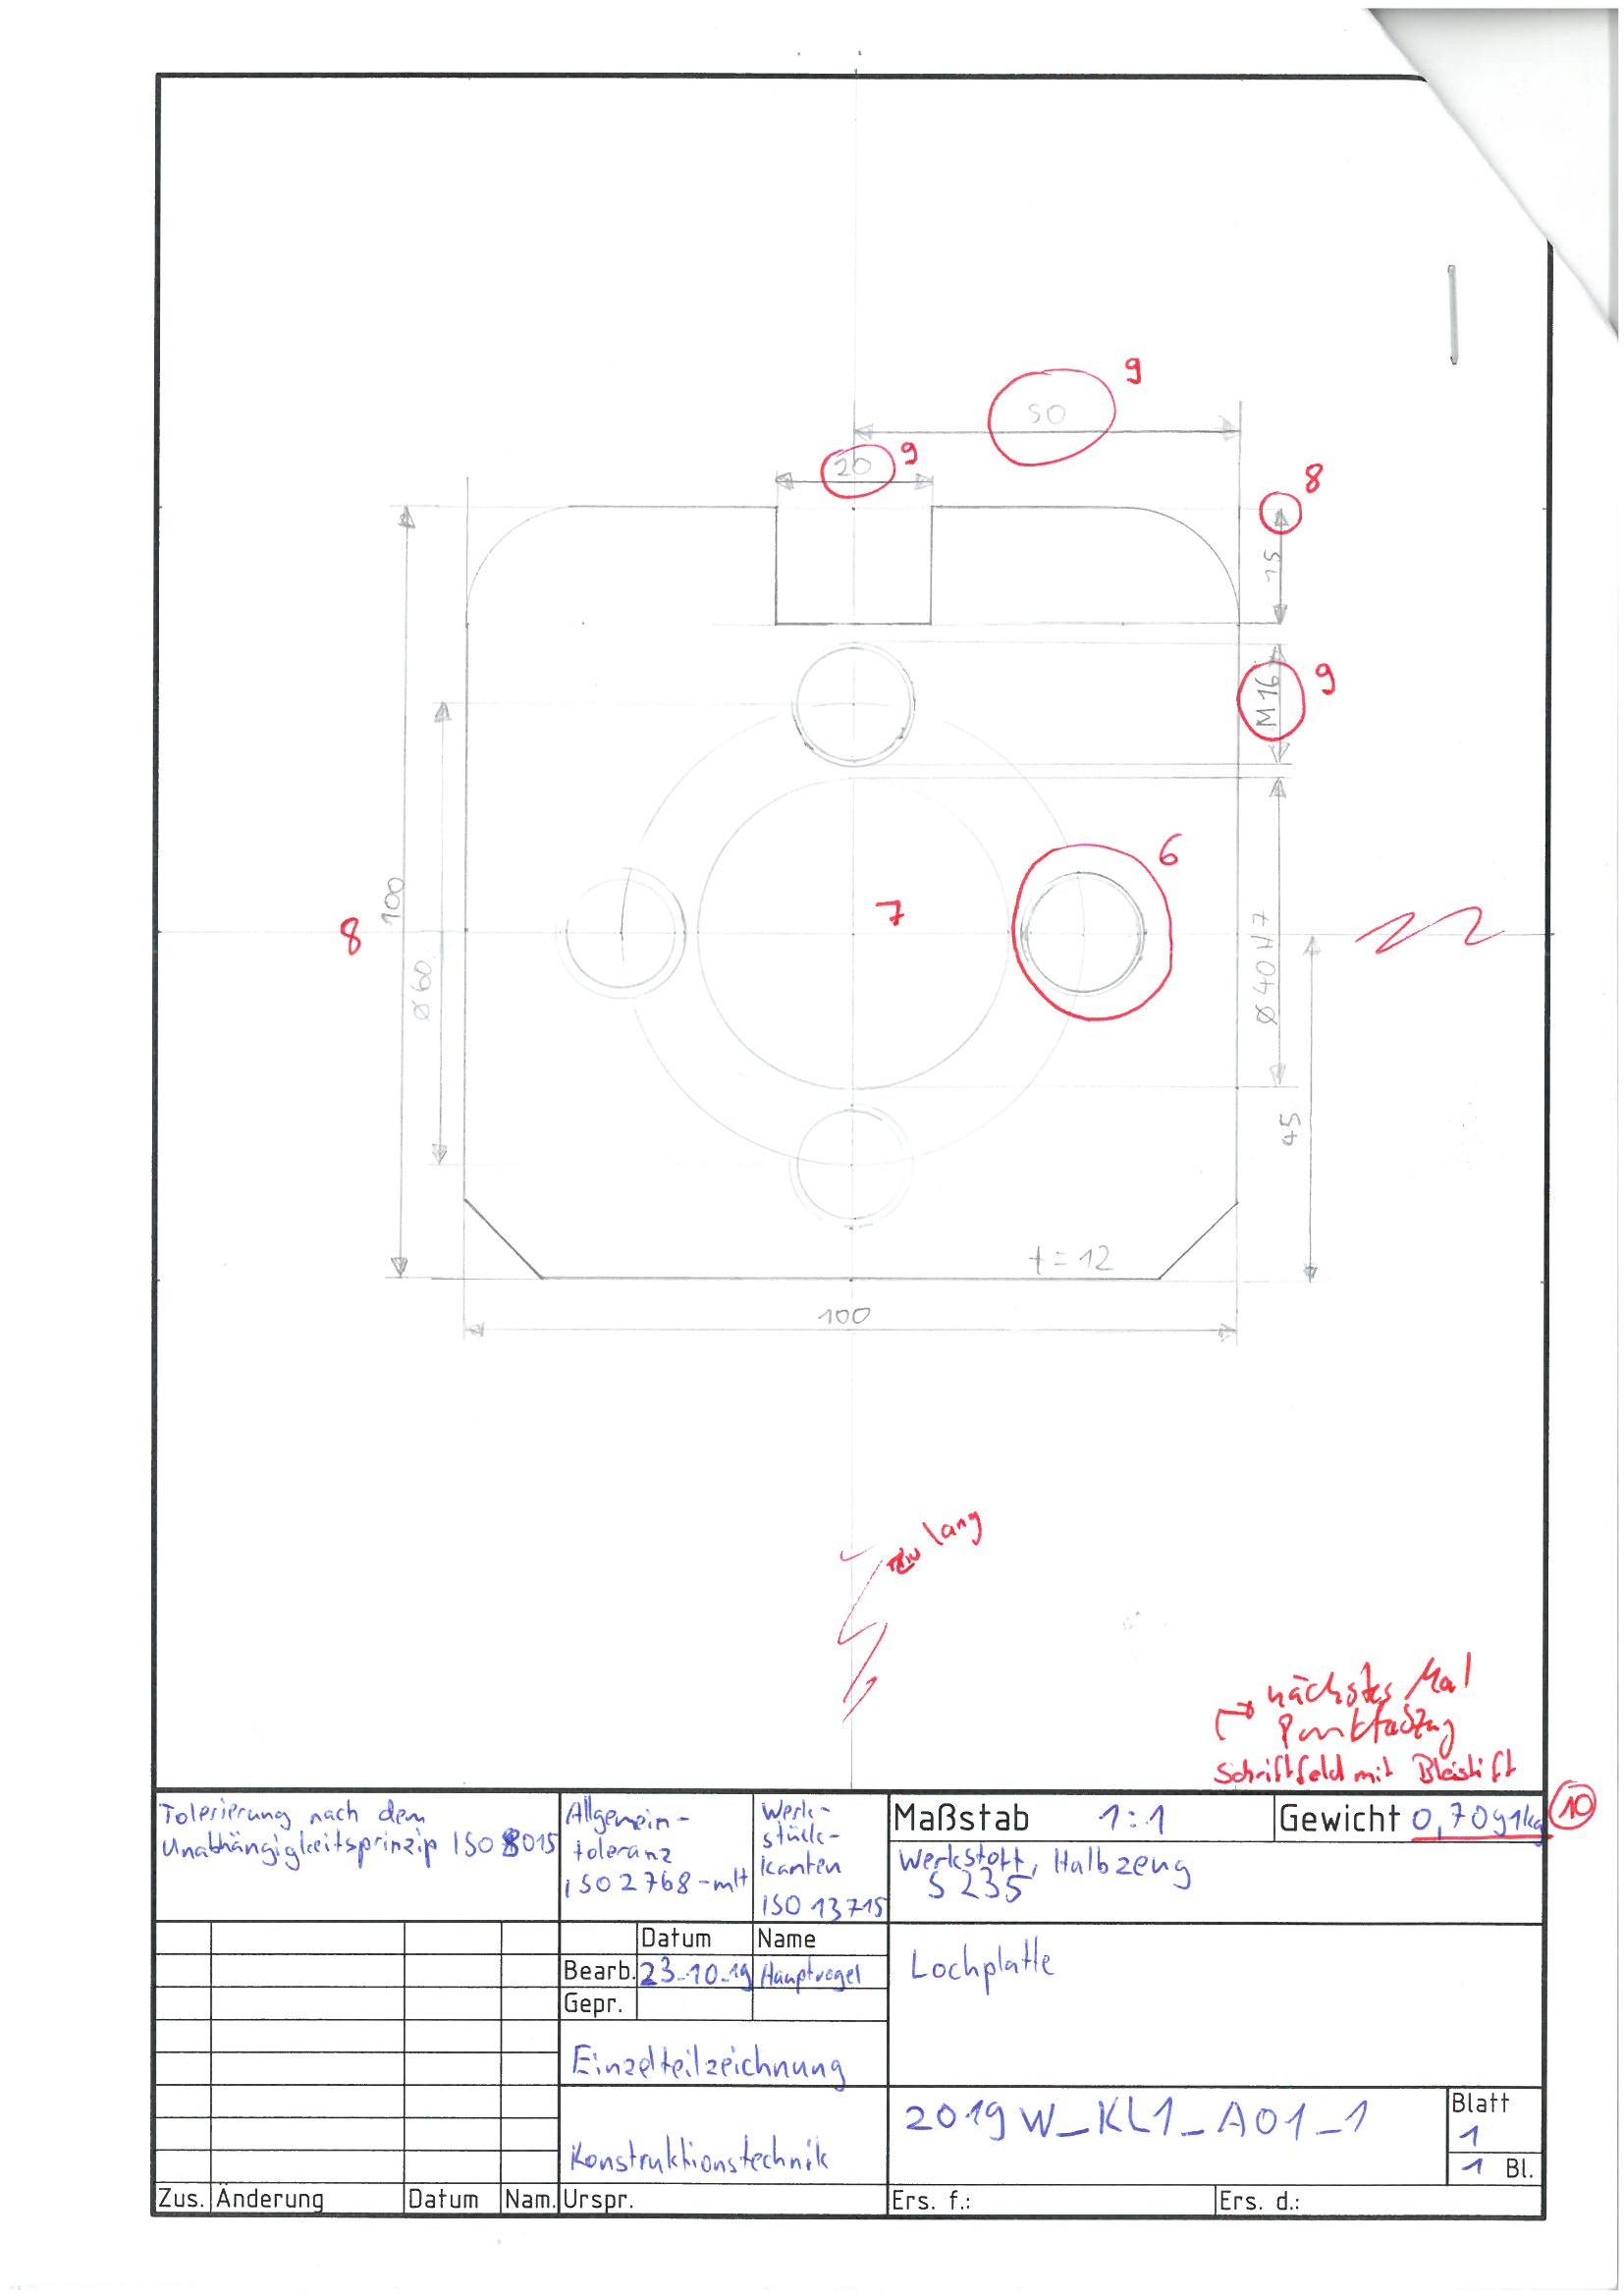 9
50
20
9
8
15
M16
9
6
7
8
100
Ø60
Ø40H7
45
t = 12
100
zu lang
nächstes Mal
Schriftfeld mit Bleistift
10
Tolerierung nach dem
Unabhängigkeitsprinzip ISO 8015
Allgemein-
toleranz
ISO 2768-mH
Werk-
stück-
kanten
ISO 13715
Maßstab 1:1
Gewicht
Werkstoff, Halbzeug
S 235
Datum Name
Bearb. 23.10.19 Hauptvogel
Gepr.
Lochplatte
Einzelteilzeichnung
Konstruktionstechnik
2019W_KL1_A01_1
Blatt
1
1 Bl.
Zus. Änderung Datum Nam. Urspr. Ers. f.: Ers. d.: